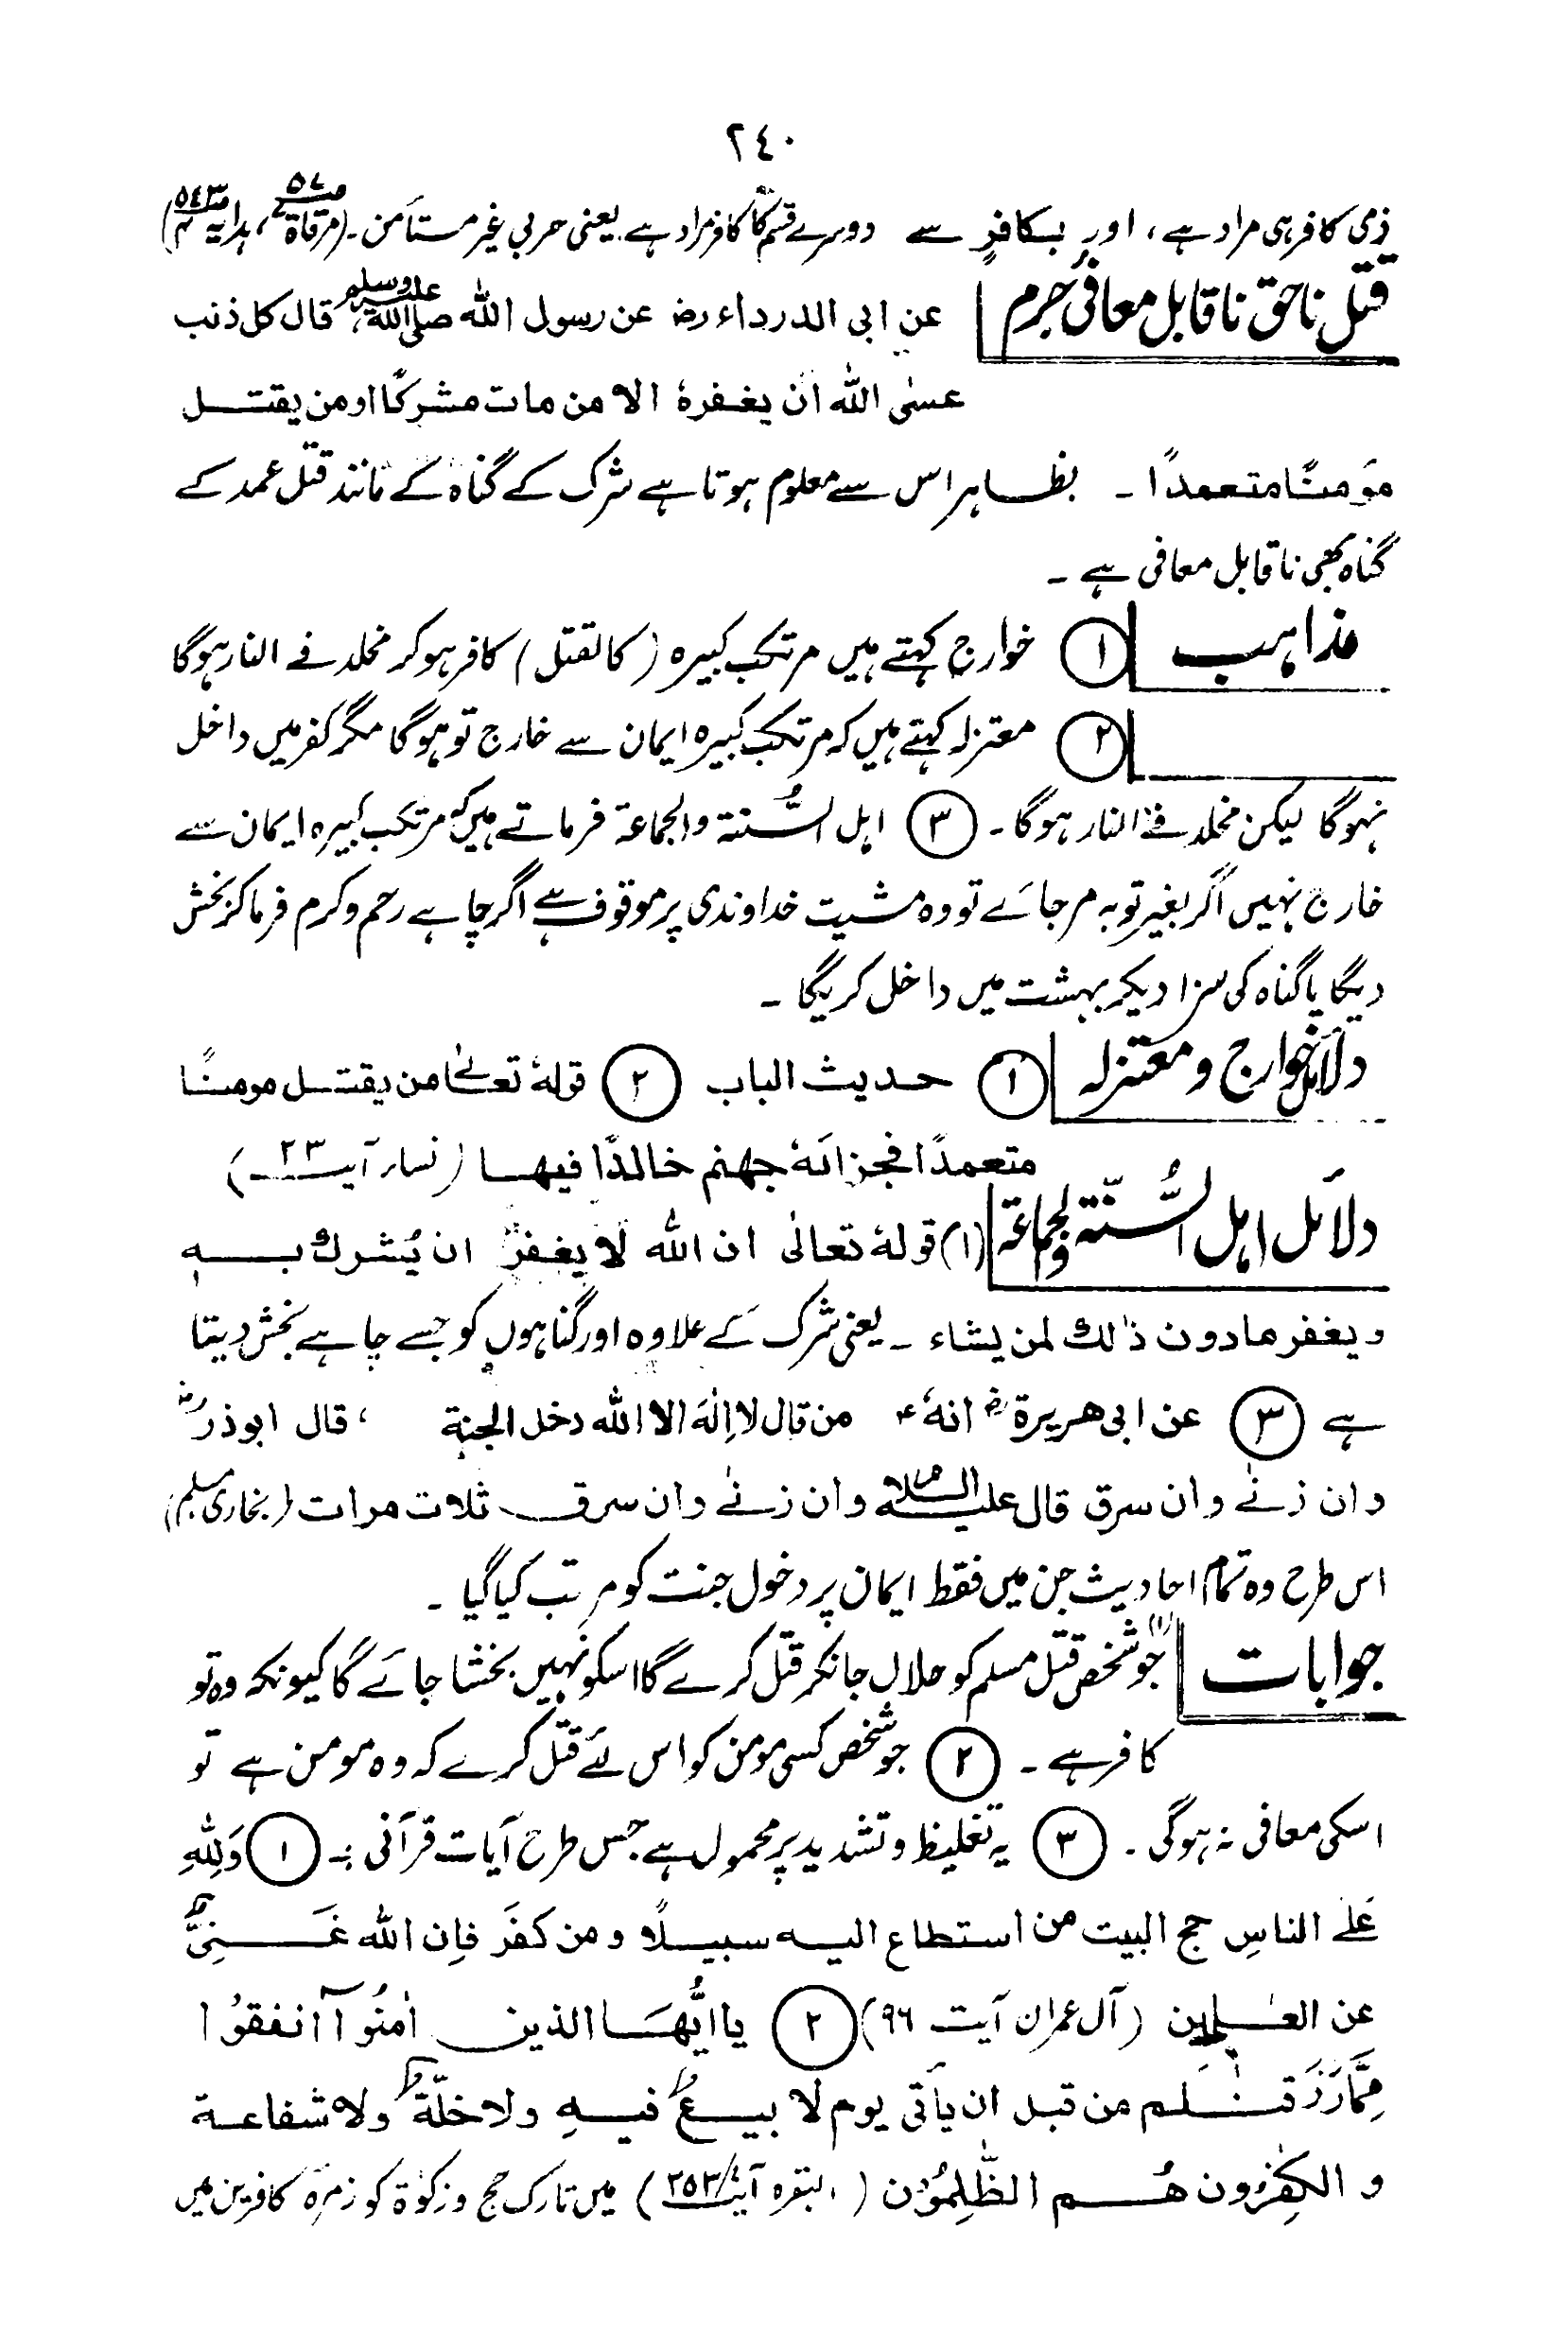 ٢٤٠
ذمی کافر ہی مراد ہے، اور بکافرٍ سے دوسرے قسم کا کافر مراد ہے۔ یعنی حربی غیر مستأمن۔ (مرقاة، ہدایہ
قتل ناحق ناقابل معافی جرم عن ابی الدرداء رض عن رسول اللہ صلی اللہ علیہ وسلم قال کل ذنب
عسی اللہ ان یغفرہٗ الا من مات مشرکًا او من یقتل
مؤمنًا متعمدًا ۔ بظاہر اس سے معلوم ہوتا ہے شرک کے گناہ کے مانند قتل عمد کے
گناہ بھی ناقابل معافی ہے ۔
مذاہب ① خوارج کہتے ہیں مرتکب کبیرہ (کالقتل) کافر ہوکر مخلد فی النار ہوگا
② معتزلہ کہتے ہیں کہ مرتکب کبیرہ ایمان سے خارج تو ہوگا مگر کفر میں داخل
نہوگا لیکن مخلد فی النار ہوگا ۔ ③ اہل السُّنۃ والجماعۃ فرماتے ہیں کہ مرتکب کبیرہ ایمان سے
خارج نہیں اگر بغیر توبہ مرجائے تو وہ مشیت خداوندی پر موقوف ہے اگر چاہے رحم وکرم فرماکر بخش
دیگا یا گناہ کی سزا دیکر بہشت میں داخل کریگا ۔
دلائل خوارج و معتزلہ ① حدیث الباب ② قولہٗ تعالیٰ من یقتل مومنًا
متعمدًا فجزائہٗ جہنم خالدًا فیہا (نساء آیت ۲۳)
دلائل اہل السُّنّۃ والجماعۃ (۱) قولہٗ تعالیٰ ان اللہ لا یغفر ان یُشرک بہ
و یغفر مادون ذٰلک لمن یشاء ۔ یعنی شرک کے علاوہ اور گناہوں کو جسے چاہے بخش دیتا
ہے ③ عن ابی ھریرة رض انہٗ ؑ من قال لا اِلٰہ الا اللہ دخل الجنۃ ، قال ابوذر رض
وان زنیٰ وان سرق قال علیہ السلام وان زنیٰ وان سرق ثلاث مرات (بخاری مسلم)
اس طرح وہ تمام احادیث جن میں فقط ایمان پر دخول جنت کو مرتب کیا گیا ۔
جوابات (۱) جو شخص قتل مسلم کو حلال جانکر قتل کرے گا اسکو نہیں بخشا جائے گا کیونکہ وہ تو
کافر ہے ۔ ② جو شخص کسی مومن کو اس لئے قتل کرے کہ وہ مومن ہے تو
اسکی معافی نہ ہوگی ۔ ③ یہ تغلیظ و تشدید پر محمول ہے جس طرح آیات قرآنی :۔ ① وَلِلّٰہِ
عَلَی الناسِ حج البیت من استطاع الیہ سبیلًا و من کفَرَ فاِن اللہ غَنِیٌّ
عن العٰلمین (آل عمران آیت ٩٦) ② یاایُّھَا الذین اٰمنُوآ انفقوُا
مِمَّا رَزَقنٰکم من قبل ان یأتی یوم لا بیعٌ فیہِ ولا خلّۃٌ ولا شفاعۃ
و الکٰفِرُون ھُم الظّٰلِمُوْن (البقرہ آیت ٢٥٣) میں تارک حج و زکوٰۃ کو زمرۂ کافرین میں